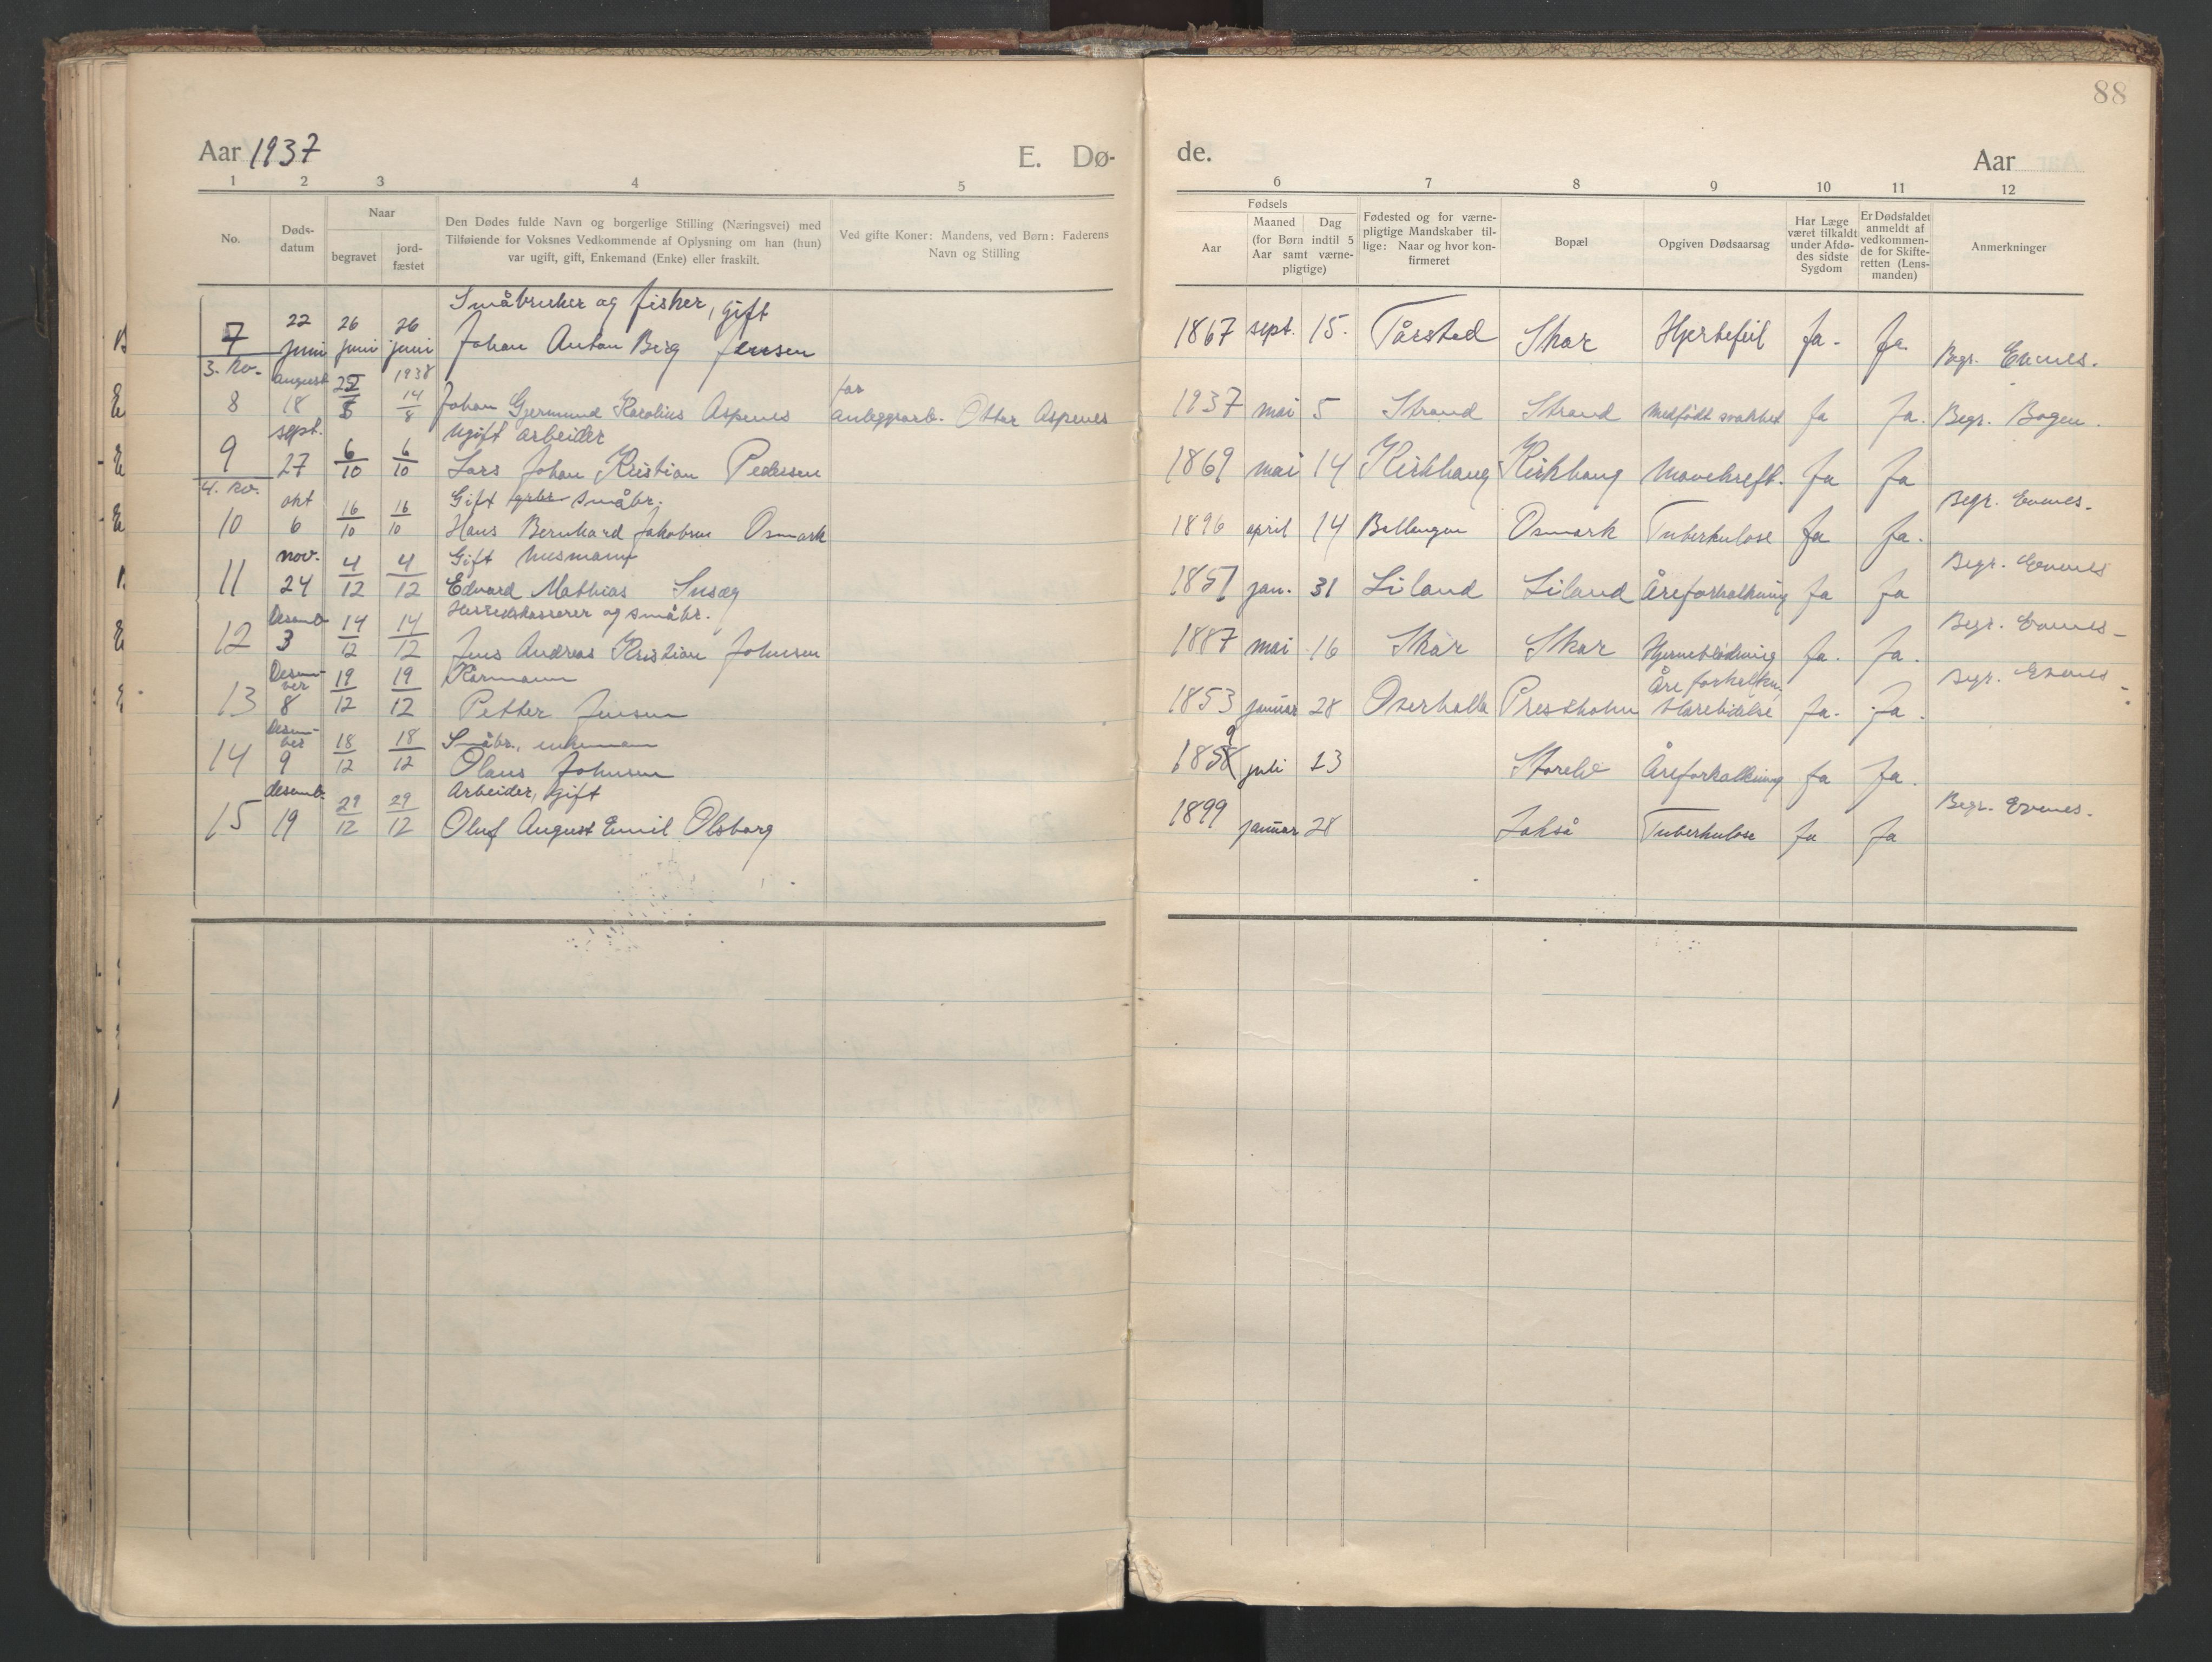 88
Aar 1937
E. Dø-
de.
Aar
1 2 3 4 5
6 7 8 9 10 11 12
No.
Døds-
datum
Naar
begravet
jord-
fæstet
Den Dødes fulde Navn og borgerlige Stilling (Næringsvei) med
Tilføiende for Voksnes Vedkommende af Oplysning om han (hun)
var ugift, gift, Enkemand (Enke) eller fraskilt.
Ved gifte Koner: Mandens, ved Børn: Faderens
Navn og Stilling
Fødsels
Aar
Maaned Dag
(for Børn indtil 5
Aar samt værne-
pligtige)
Fødested og for værne-
pligtige Mandskaber til-
lige: Naar og hvor kon-
firmeret
Bopæl
Opgiven Dødsaarsag
Har Læge
været tilkaldt
under Afdø-
des sidste
Sygdom
Er Dødsfaldet
anmeldt af
vedkommen-
de for Skifte-
retten (Lens-
manden)
Anmerkninger
Småbruker og fisker, gift
7 22 juni 26 juni 26 juni Johan Anton Berg Jensen 1867 sept. 15. Tårstad Skar Hjertefeil Ja. Ja Begr. Evenes.
3. kv.
8 august 18 1938 14/8 Johan Gjermund Karolius Aspenes far anleggsarb. Ottar Aspenes 1937 mai 5 Strand Strand Medfødt svakhet Ja Ja. Begr. Bogen.
Ugift arbeider
9 sept. 27 6/10 6/10 Lars Johan Kristian Pedersen 1869 mai 14 Kirkhaug Kirkhaug Mavekreft. Ja Ja
4. kv.
Gift småbr.
10 okt 6 16/10 16/10 Hans Bernhard Jakobsen Osmark 1896 april 14 Ballangen Osmark Tuberkulose Ja Ja. Begr. Evenes.
Gift husmann
11 nov. 24 4/12 4/12 Edvard Mathias 1851 jan. 31 Liland Liland Åreforkalkning Ja Ja Begr. Evenes
Herredskasserer og småbr.
12 Desemb 3 14/12 14/12 Jens Andreas Kristian Johnsen 1887 mai 16 Skar Skar Hjerneblødning Ja. Ja. Begr. Evenes
Kårmann
13 Desember 8 19/12 19/12 Petter Jensen 1853 januar 28 Overhalla Prestholm Ja. Ja. Begr. Evenes
Småbr., enkeman
14 Desember 9 18/12 18/12 Olaus Johnsen 1858 9 juli 23 Åreforkalkning Ja Ja.
Arbeider, gift
15 desemb. 19 29/12 29/12 Oluf August Emil Olsborg 1899 januar 28 Jakså Tuberkulose Ja Ja Begr. Evenes.